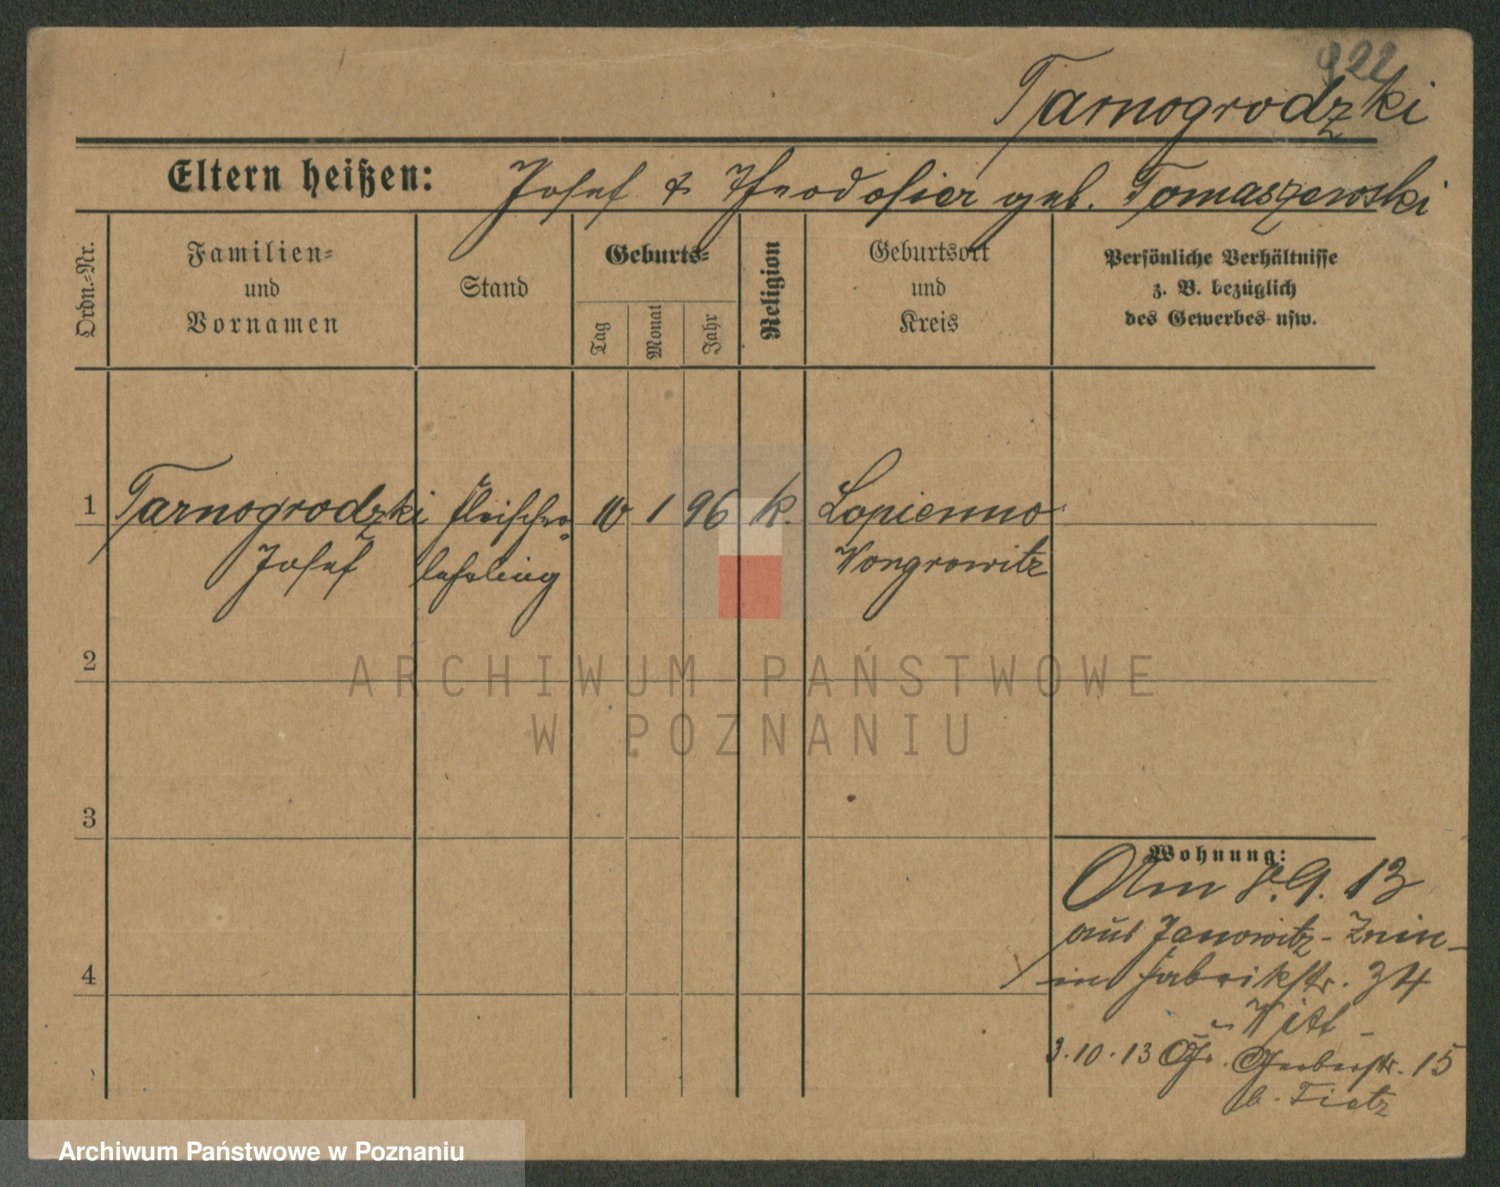 922
Tarnogrodzki
Eltern heißen: Josef & Theodosier geb. Tomaszewski
Ordn.-Nr.
Familien-
und
Vornamen
Stand
Geburts-
Tag
Monat
Jahr
Religion
Geburtsort
und
Kreis
Persönliche Verhältnisse
z. B. bezüglich
des Gewerbes usw.
1 Tarnogrodzki Fleischer- 10 1 96 k. Lopienno
Josef lehrling Wongrowitz
2
ARCHIWUM PAŃSTWOWE
W POZNANIU
3
Wohnung:
Am 8.9.13
aus Janowitz-Znin
4
in Fabrikstr. 34
3.10.13 Gr. Gerberstr. 15
b. Tietz
Archiwum Państwowe w Poznaniu